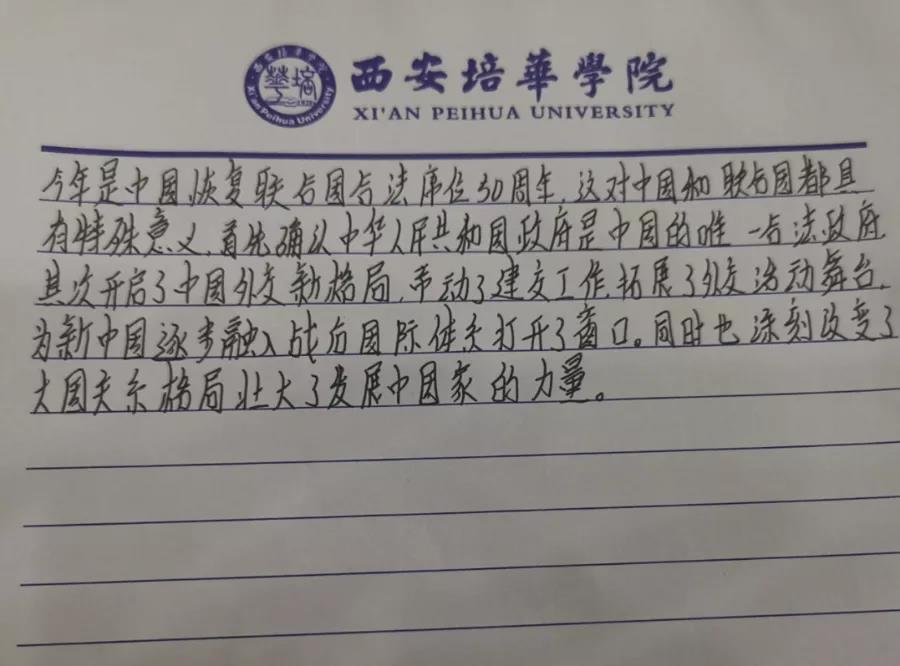 西安培華學院
XI'AN PEIHUA UNIVERSITY
西安培华学院
Xi'an Peihua University
今年是中国恢复联合国合法席位50周年，这对中国和联合国都具
有特殊意义，首先确认中华人民共和国政府是中国的唯一合法政府
其次开启了中国外交新格局，带动了建交工作，拓展了外交活动舞台，
为新中国逐步融入战后国际体系打开了窗口。同时也深刻改变了
大国关系格局壮大了发展中国家的力量。